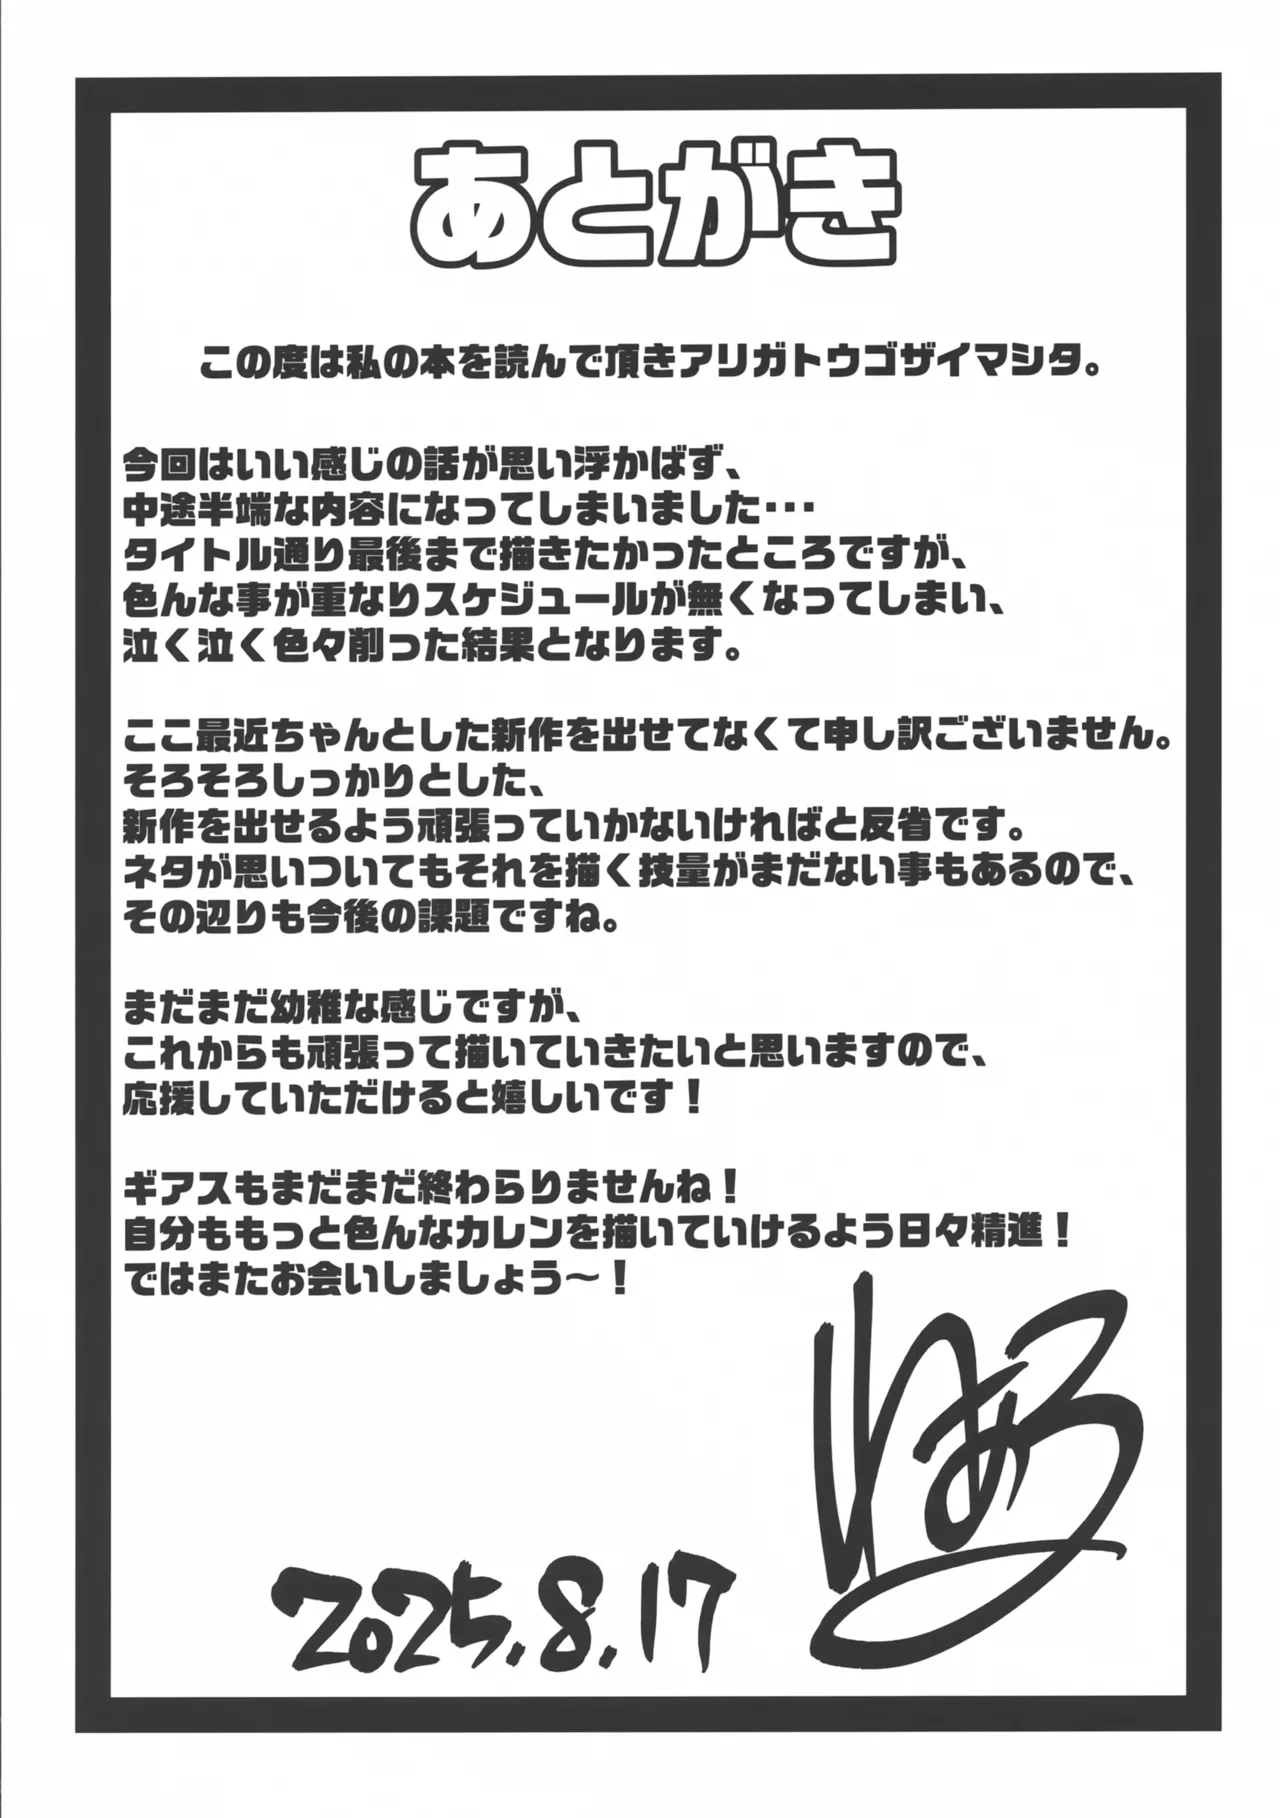 あとがき
この度は私の本を読んで頂きアリガトウゴザイマシタ。
今回はいい感じの話が思い浮かばず、
中途半端な内容になってしまいました・・・
タイトル通り最後まで描きたかったところですが、
色んな事が重なりスケジュールが無くなってしまい、
泣く泣く色々削った結果となります。
ここ最近ちゃんとした新作を出せてなくて申し訳ございません。
そろそろしっかりとした、
新作を出せるよう頑張っていかないければと反省です。
ネタが思いついてもそれを描く技量がまだない事もあるので、
その辺りも今後の課題ですね。
まだまだ幼稚な感じですが、
これからも頑張って描いていきたいと思いますので、
応援していただけると嬉しいです！
ギアスもまだまだ終わらりませんね！
自分ももっと色んなカレンを描いていけるよう日々精進！
ではまたお会いしましょう～！
2025.8.17